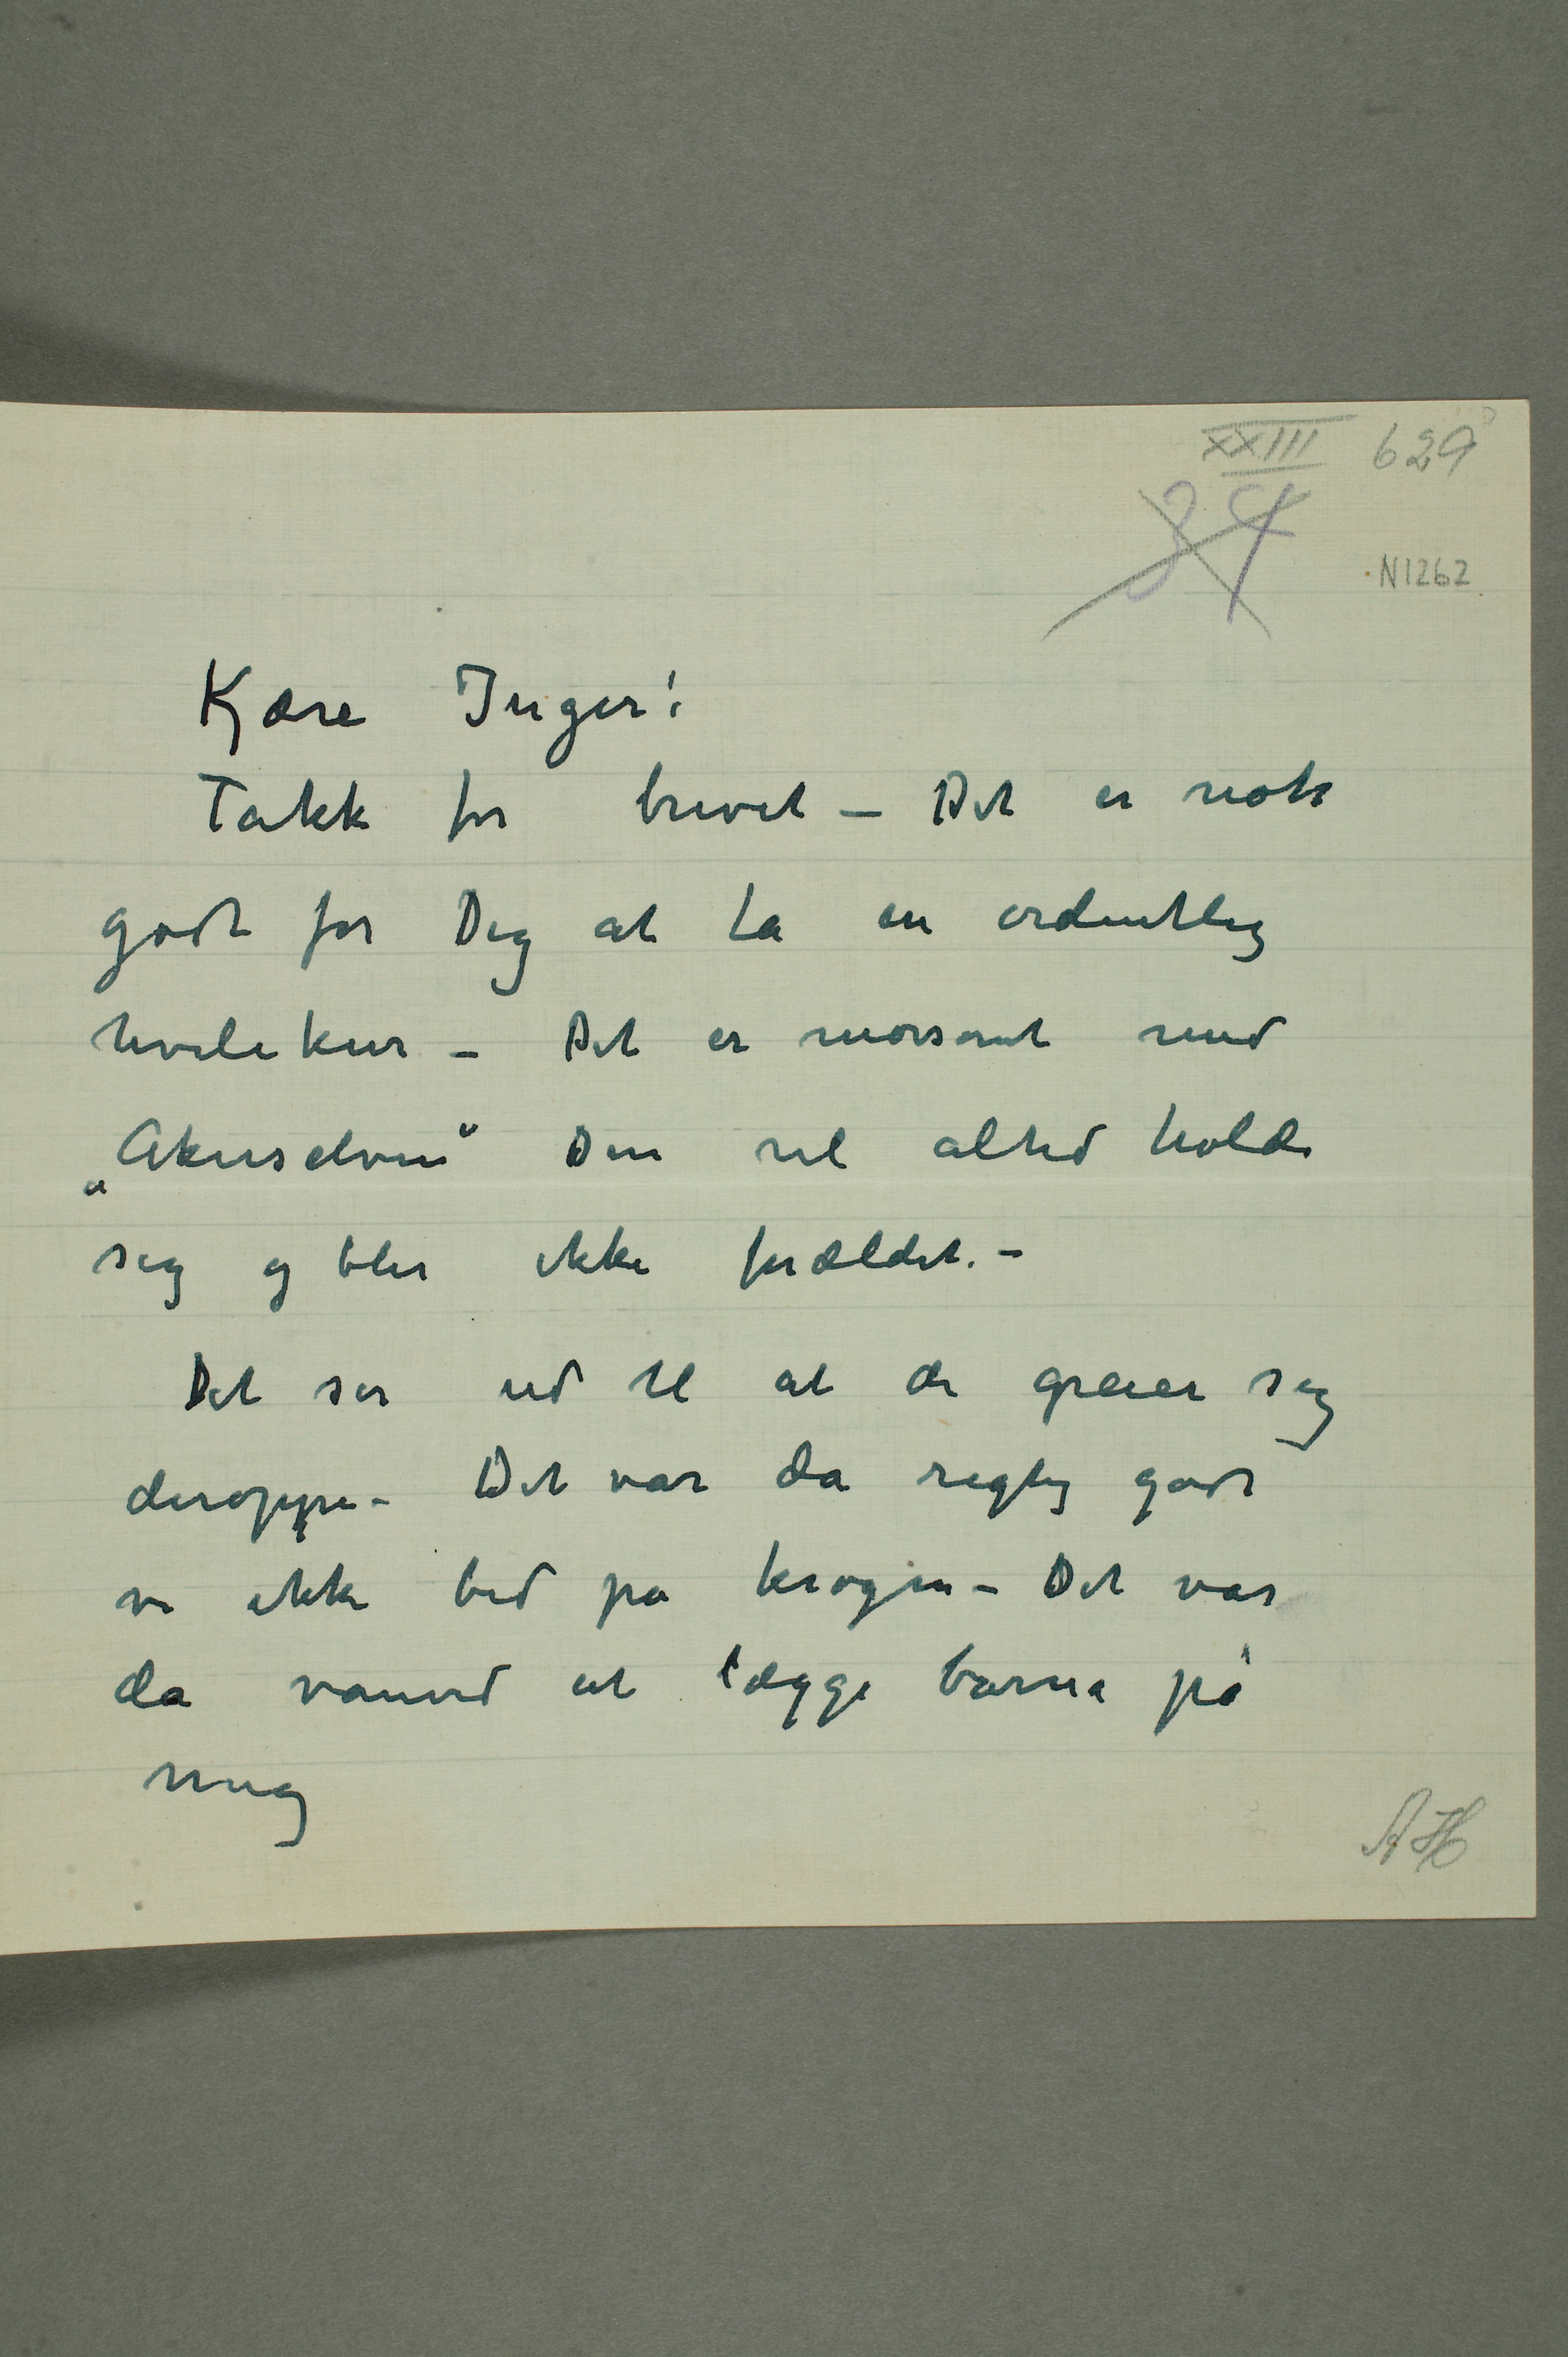 XXIII 629
34
N1262
Kjære Inger!
Takk for brevet – Det er nok
godt for Dig at ta en ordentlig
hvilekur – Det er morsomt med
„Akerselven“ Den vil altid holde
sig og blir ikke forældet. –
Det ser ud til at de greier sig
deroppe – Det var da rigtig godt
vi ikke bed på krogen – Det var
da vanvid at lægge barna på
mig
AH